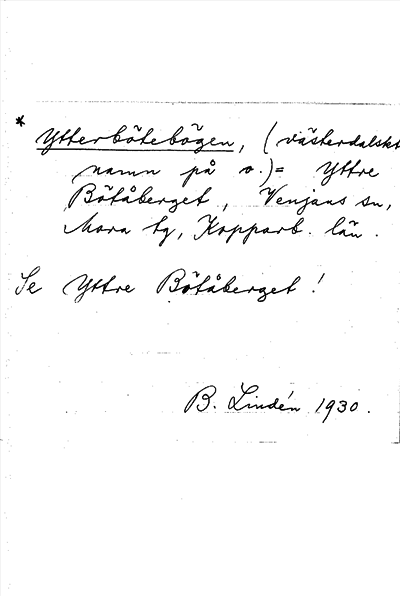 * Ytterbötebögen, (västerdalskt
namn på o.) = Yttre
Bötåberget, Venjans sn,
Mora tg, Kopparb. län.
Se Yttre Bötåberget!
B. Lindén 1930.